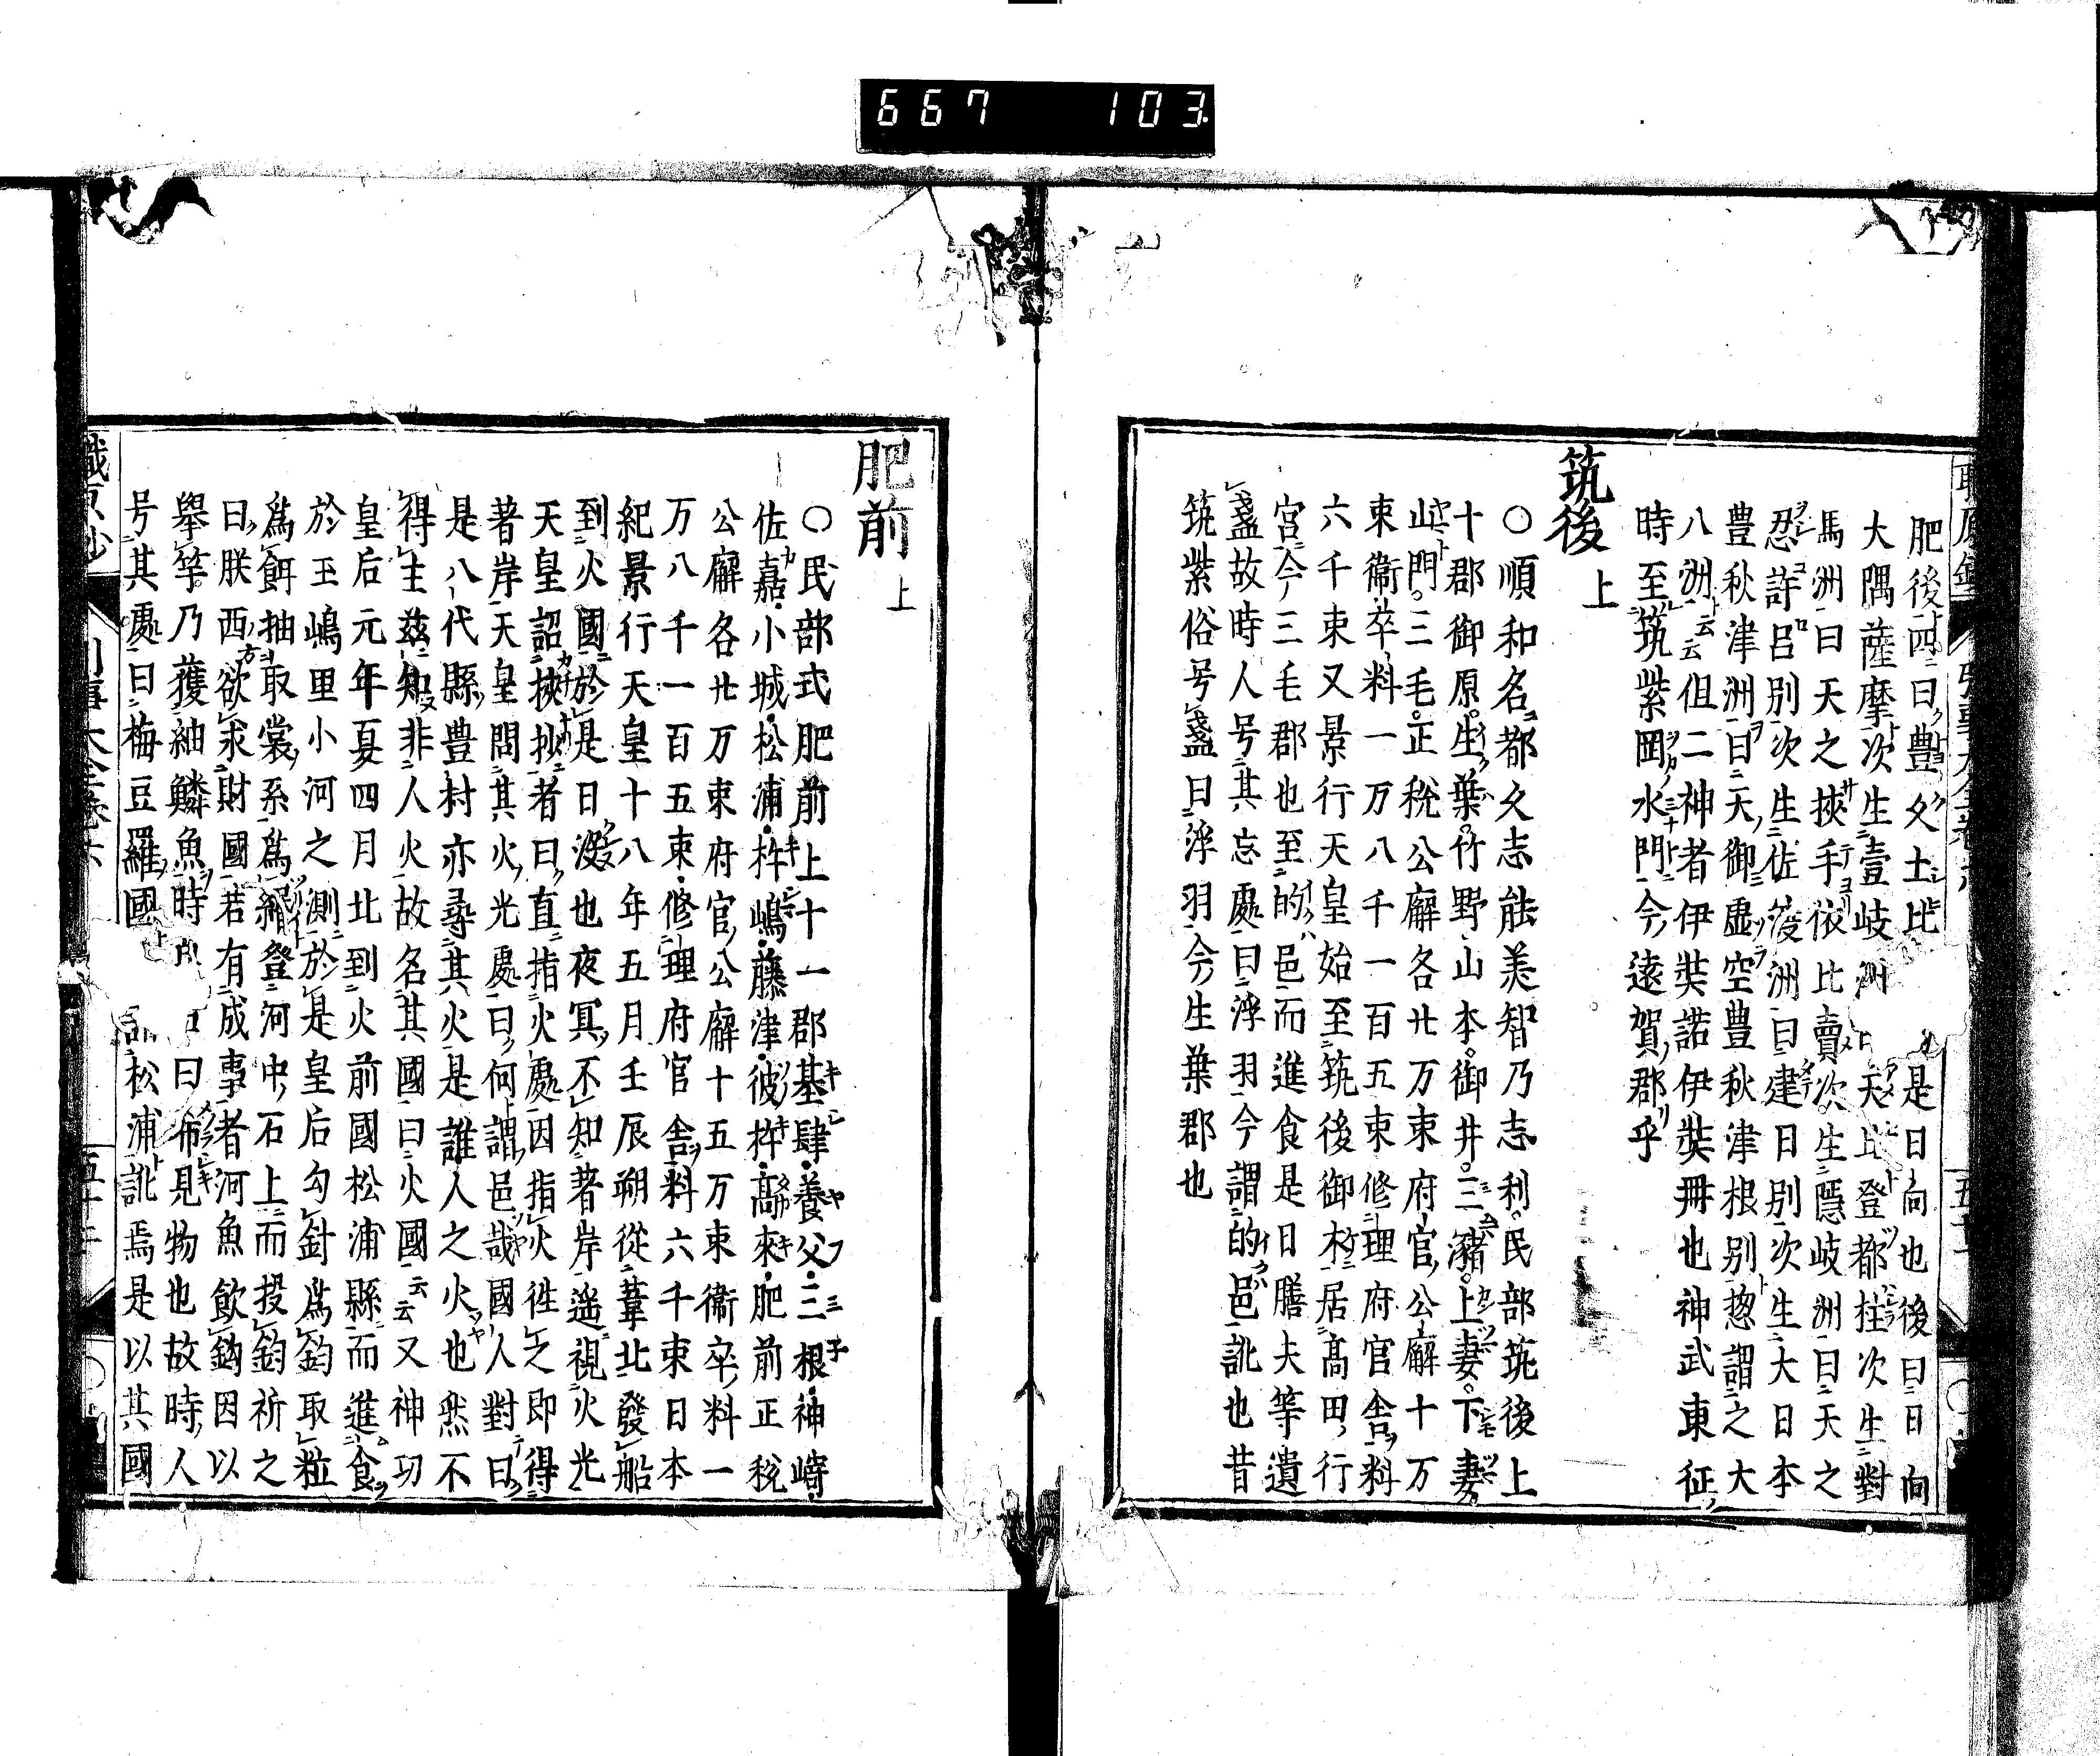 667 103
肥後四曰豊久土比是日向也後曰日向
大隅薩摩次生壹岐洲天比登都柱次生對
馬洲曰天之挾手依比賣次生隱岐洲曰天之
忍許呂別次生佐渡洲曰建日別次生大日本
豊秋津洲曰天御虛空豊秋津根別惣謂之大
八洲云云伹二神者伊弉諾伊弉冊也神武東征
時至筑紫岡水門今遠賀郡乎
筑後 上
○順和名都久志能美智乃志利民部筑後上
十郡御原生葉竹野山本御井三瀦上妻下妻
山門三毛正稅公廨各廿万束府官公廨十万
束衞卒料一万八千一百五束修理府官舎料
六千束又景行天皇始至筑後御木居髙田行
宮今三毛郡也至的邑而進食是日膳夫等遺
盞故時人号其忘處曰浮羽今謂的邑訛也昔
筑紫俗号盞曰浮羽今生葉郡也
肥前 上
○民部式肥前上十一郡基肆養父三根神﨑
佐嘉小城松浦杵嶋藤津彼杵髙來肥前正稅
公廨各廿万束府官公廨十五万束衞卒料一
万八千一百五束修理府官舎料六千束日本
紀景行天皇十八年五月壬辰朔從葦北發船
到火國於是日没也夜冥不知著岸遥視火光
天皇詔挾抄者曰直指火處因指火徃之即得
著岸天皇問其火光處曰何謂邑哉國人對曰
是八代縣豊村亦尋其火是誰人之火也然不
得主茲知非人火故名其國曰火國云云又神功
皇后元年夏四月北到火前國松浦縣而進食
於玉嶋里小河之測於是皇后勾針爲鈎取粒
爲餌抽取裳系爲緡登河中石上而投鈎祈之
曰朕西欲求財國若有成事者河魚飲鈎因以
舉竿乃獲細鱗魚時曰希見物也故時人
号其處曰梅豆羅國松浦訛焉是以其國